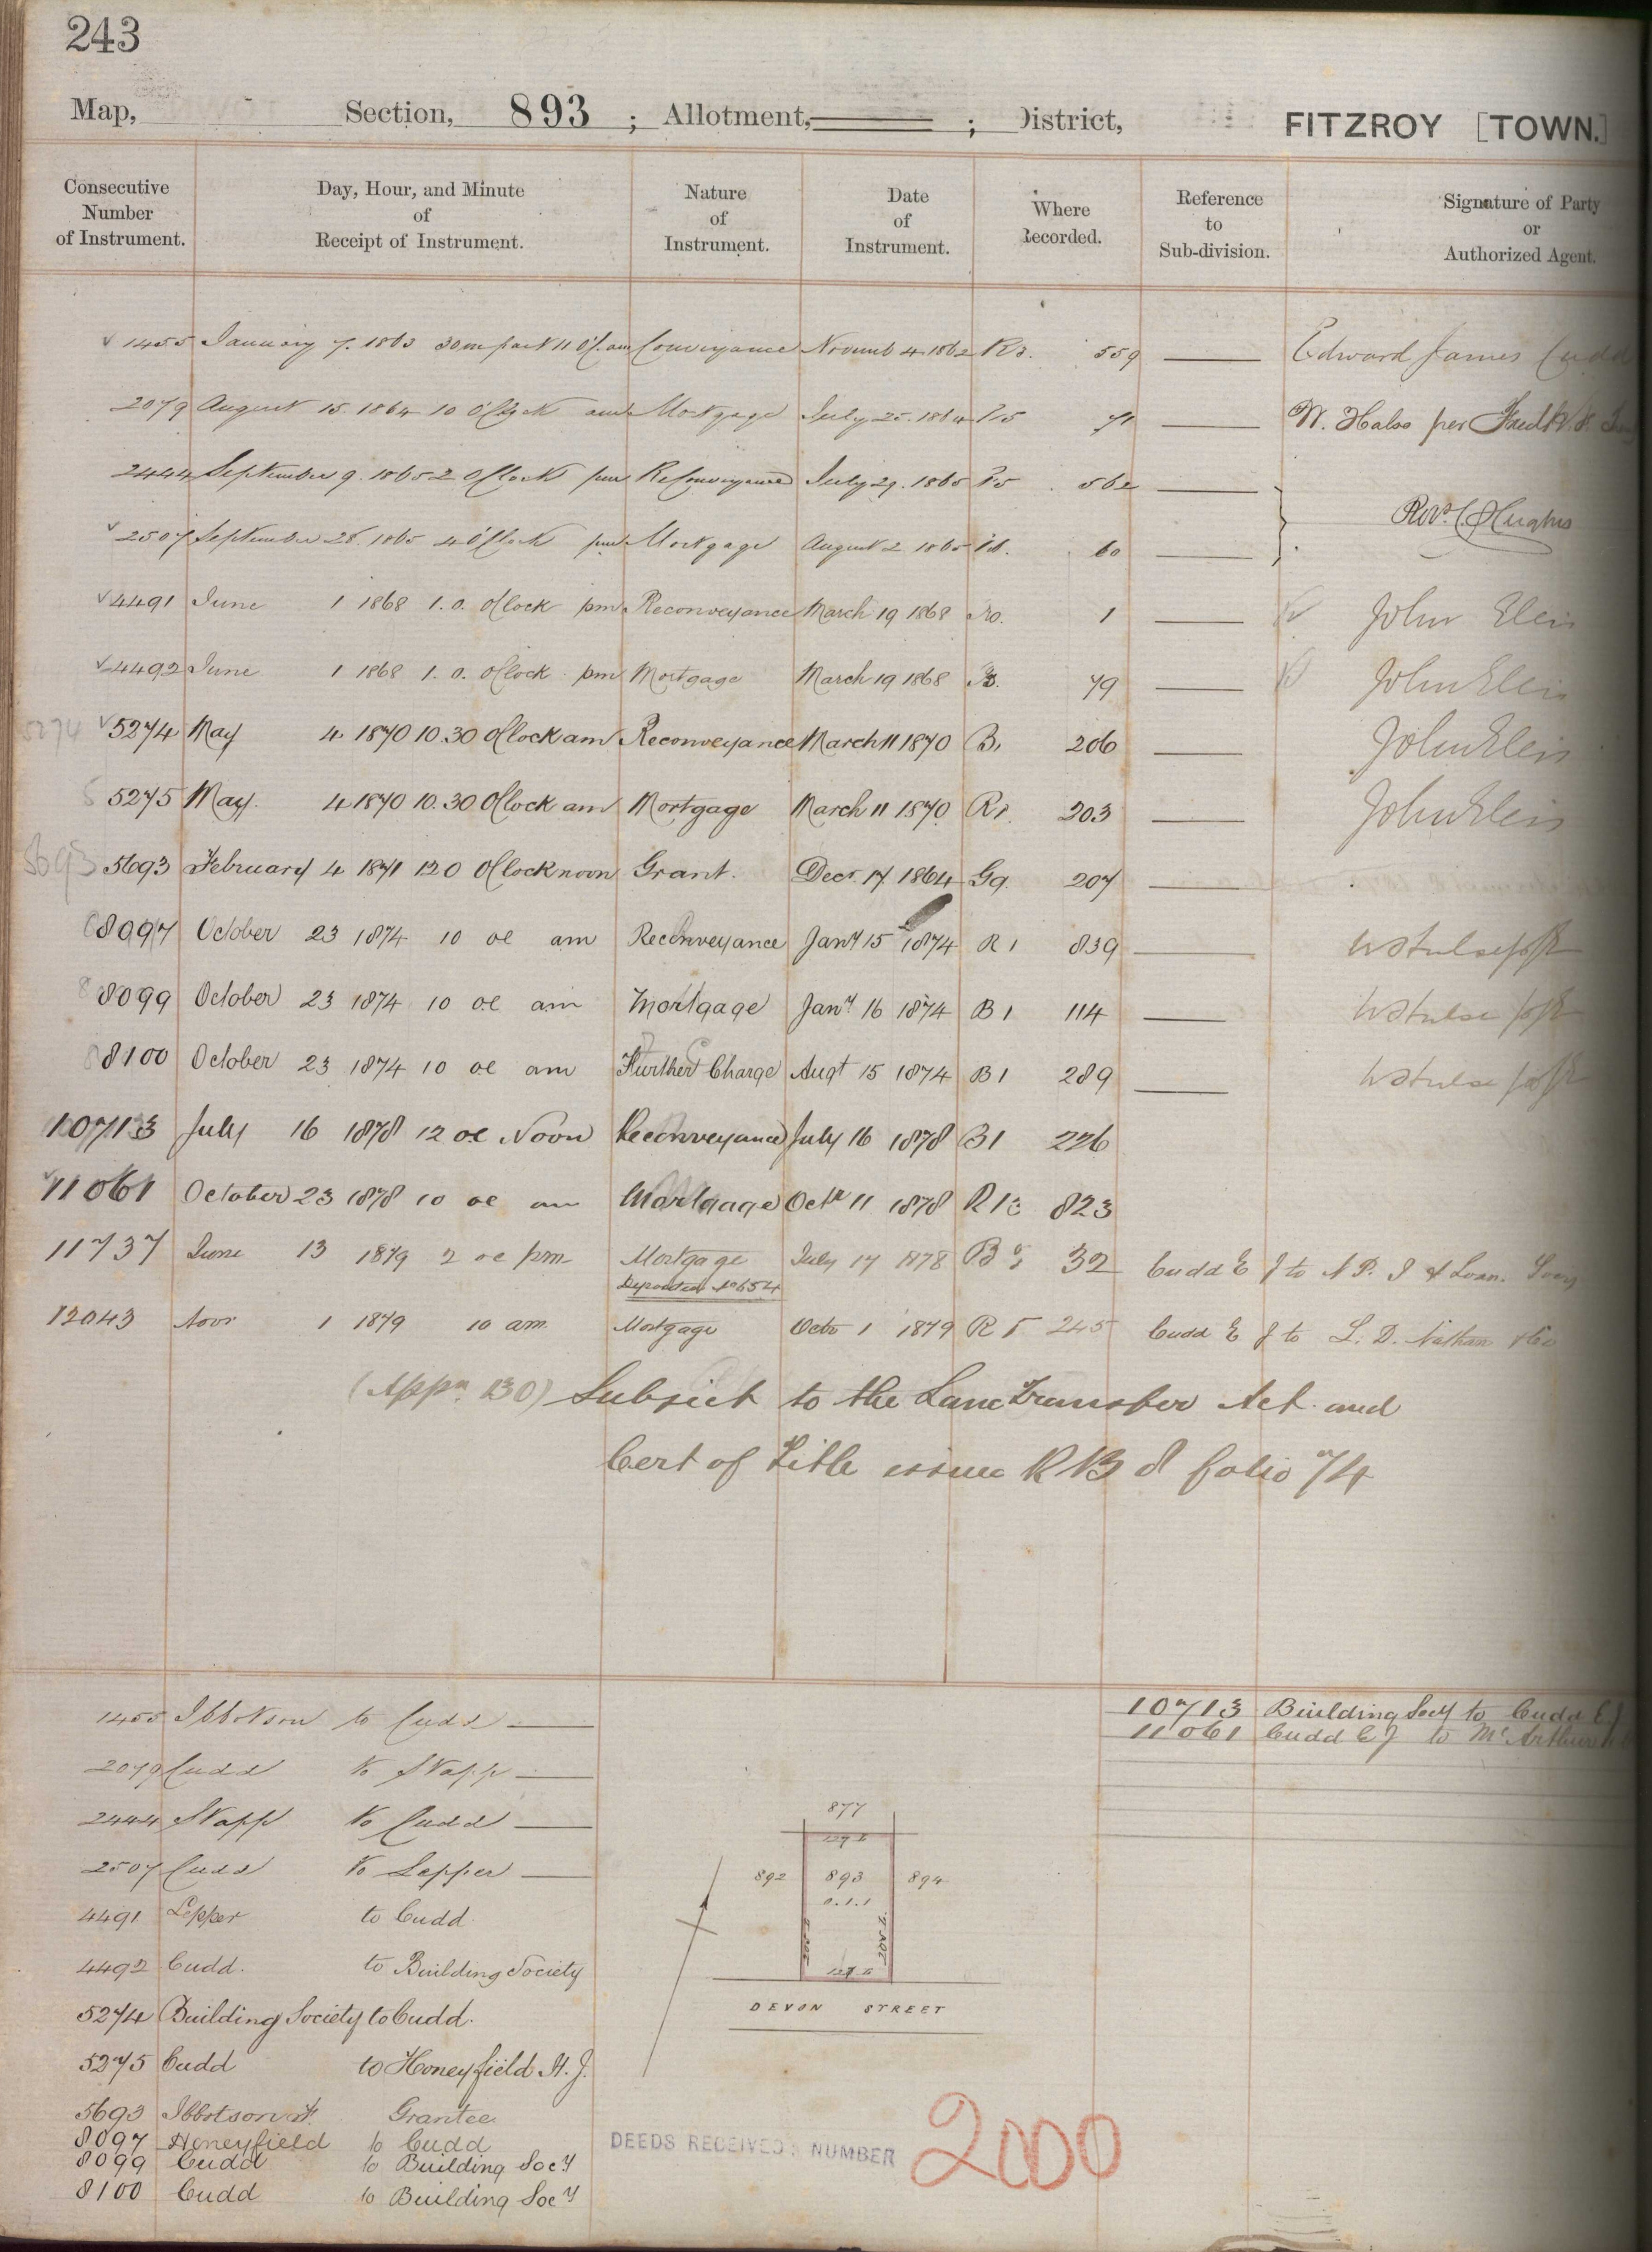 243
Map, Section, 893 ; Allotment, ; District, FITZROY [TOWN.]
Consecutive Number of Instrument. Day, Hour, and Minute of Receipt of Instrument. Nature of Instrument. Date of Instrument. Where Recorded. Reference to Sub-division. Signature of Party or Authorized Agent.
1455 January 7. 1863 30 m past 11 Conveyance Novemb 4 1862 559 Edward James Cudd
2079 August 15. 1864 10 O'Clock am Mortgage July 25. 1864 71 W. Halse per
2444 September 9. 1865 2 O'Clock pm ReConveyance July 29. 1865 562
2507 September 28. 1865 4 O'Clock pm Mortgage August 2 1865 60 Hughes
4491 June 1 1868 1. 0. O'Clock pm Reconveyance March 19 1868 1 John
4492 June 1 1868 1. 0. O'Clock pm Mortgage March 19 1868 79 John
5274 5274 May 4 1870 10.30 O'Clock am Reconveyance March 11 1870 B1 206 John
5275 May 4 1870 10.30 O'Clock am Mortgage March 11 1870 203 John
5693 5693 February 4 1871 12 0 O'Clock noon Grant. Decr. 17 1864 207
8097 October 23 1874 10 oc am Reconveyance Jany 15 1874 R 1 839
8099 October 23 1874 10 oc am Mortgage Jany 16 1874 B 1 114
8100 October 23 1874 10 oc am Further Charge Augt 15 1874 B 1 289
10713 July 16 1878 12 oc Noon Reconveyance July 16 1878 B 1 226
11061 October 23 1878 10 oc am Mortgage Octr 11 1878 823
11737 June 13 1879 2 oc pm Mortgage July 17 1878 B 32 Cudd E J to & Loan
654
12043 Novr 1 1879 10 am Mortgage Octr 1 1879 R 5 245 Cudd E J to L. D. Nathan & Co
(Appn 130) Subject to the Land Transfer Act and
Cert of Title issued R B 8 folio 74
1455 Ibbotson to Cudd
2079 Cudd to
2444 to Cudd
2507 Cudd to Lepper
4491 Lepper to Cudd.
4492 Cudd. to Building Society
5274 Building Society to Cudd.
5275 Cudd to Honeyfield H. J.
5693 Ibbotson Grantee
8097 Honeyfield to Cudd
8099 Cudd to Building Socy
8100 Cudd to Building Socy
10713 Building Socy to Cudd E J
11061 Cudd E J to McArthur
877
892 893 894
0.1.1
DEVON STREET
DEEDS RECEIVED: NUMBER 2000